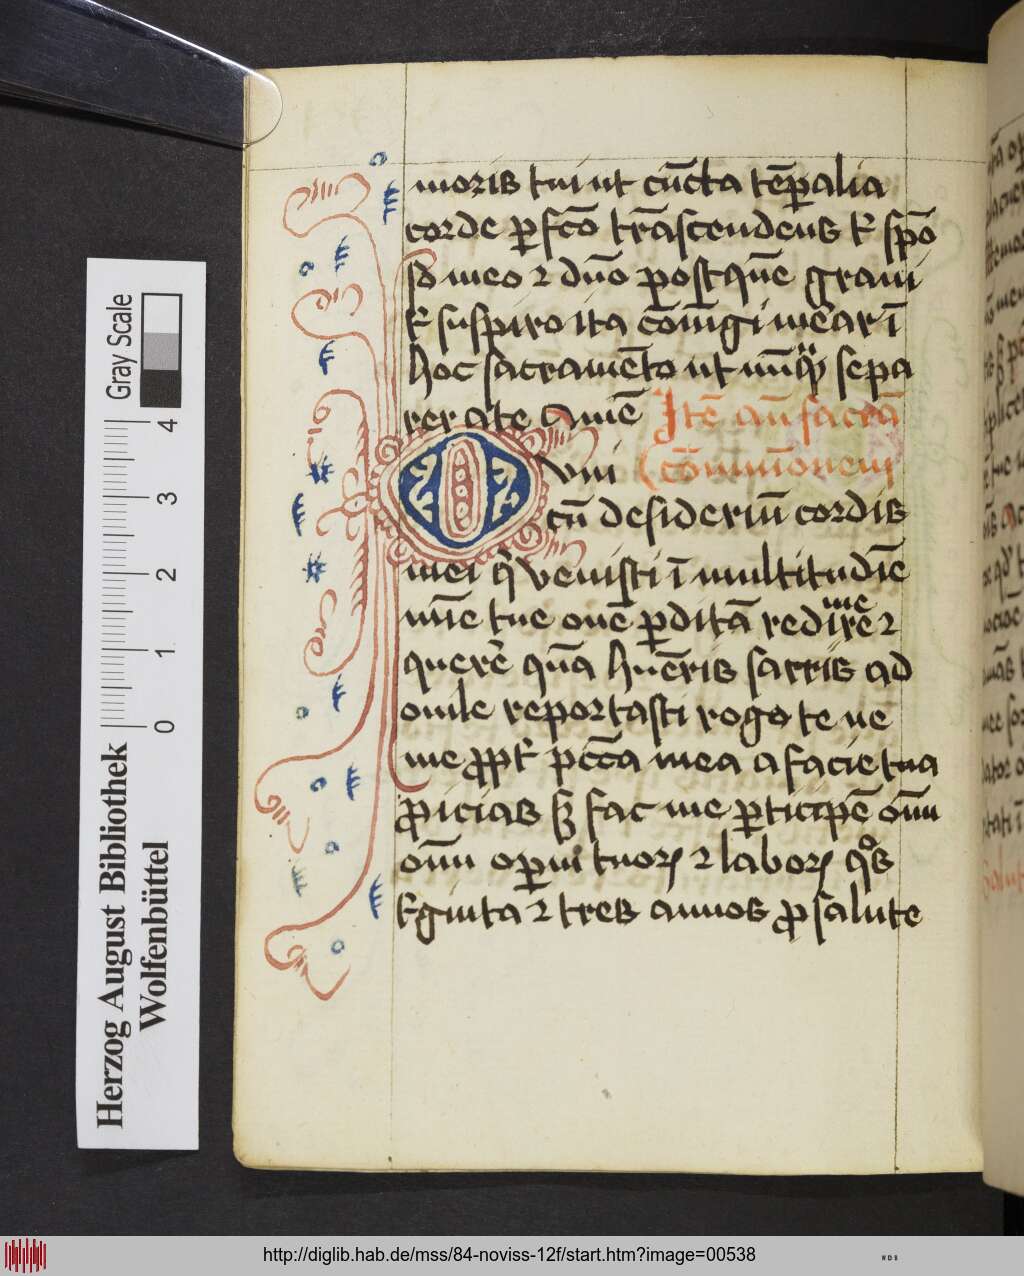 moris tui ut cūcta tēꝑalia
corde ꝑfc̄o trāscendens ⁊ spō
so meo ⁊ dn̄o postqūe grauit͛
suspiro ita cōiūgi mēar ī
hoc sacramēto ut nūqᷓ sepa
rer a te amē Itē an̄ sacrā
O vni cōmuniōnem
cū desideriū cordis
mei qͥ venisti ī multitudīe
mīe tue ouē ꝑditā redimere ⁊
querē quā hūeris sacris ad
ouile reportasti rogo te ne
me ꝓpt͛ pctā mea a facie tua
ꝓicias sꝫ fac me ꝑticipē om̄
om̄ oꝑum tuoꝝ ⁊ laboꝝ qͦs
t͛ginta ⁊ tres annos ꝓ salute
Gray Scale
0 1 2 3 4
Herzog August Bibliothek
Wolfenbüttel
http://diglib.hab.de/mss/84-noviss-12f/start.htm?image=00538